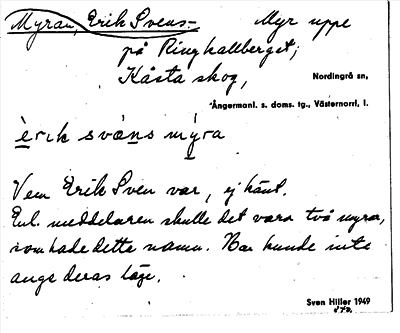 Myran, Erik Svens- Myr uppe
på Ringkallberget;
Kåsta skog,
Nordingrå sn,
Ångermanl. s. doms. tg., Västernorrl. l.
èrik svæns mýra
Vem Erik Sven var, ej känt.
Enl. meddelaren skulle det vara två myrar,
som hade detta namn. Han kunde inte
ange deras läge.
Sven Hiller 1949